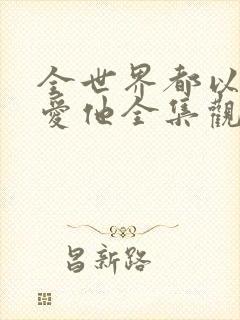 全世界都以
爱他全集觀
昌新路